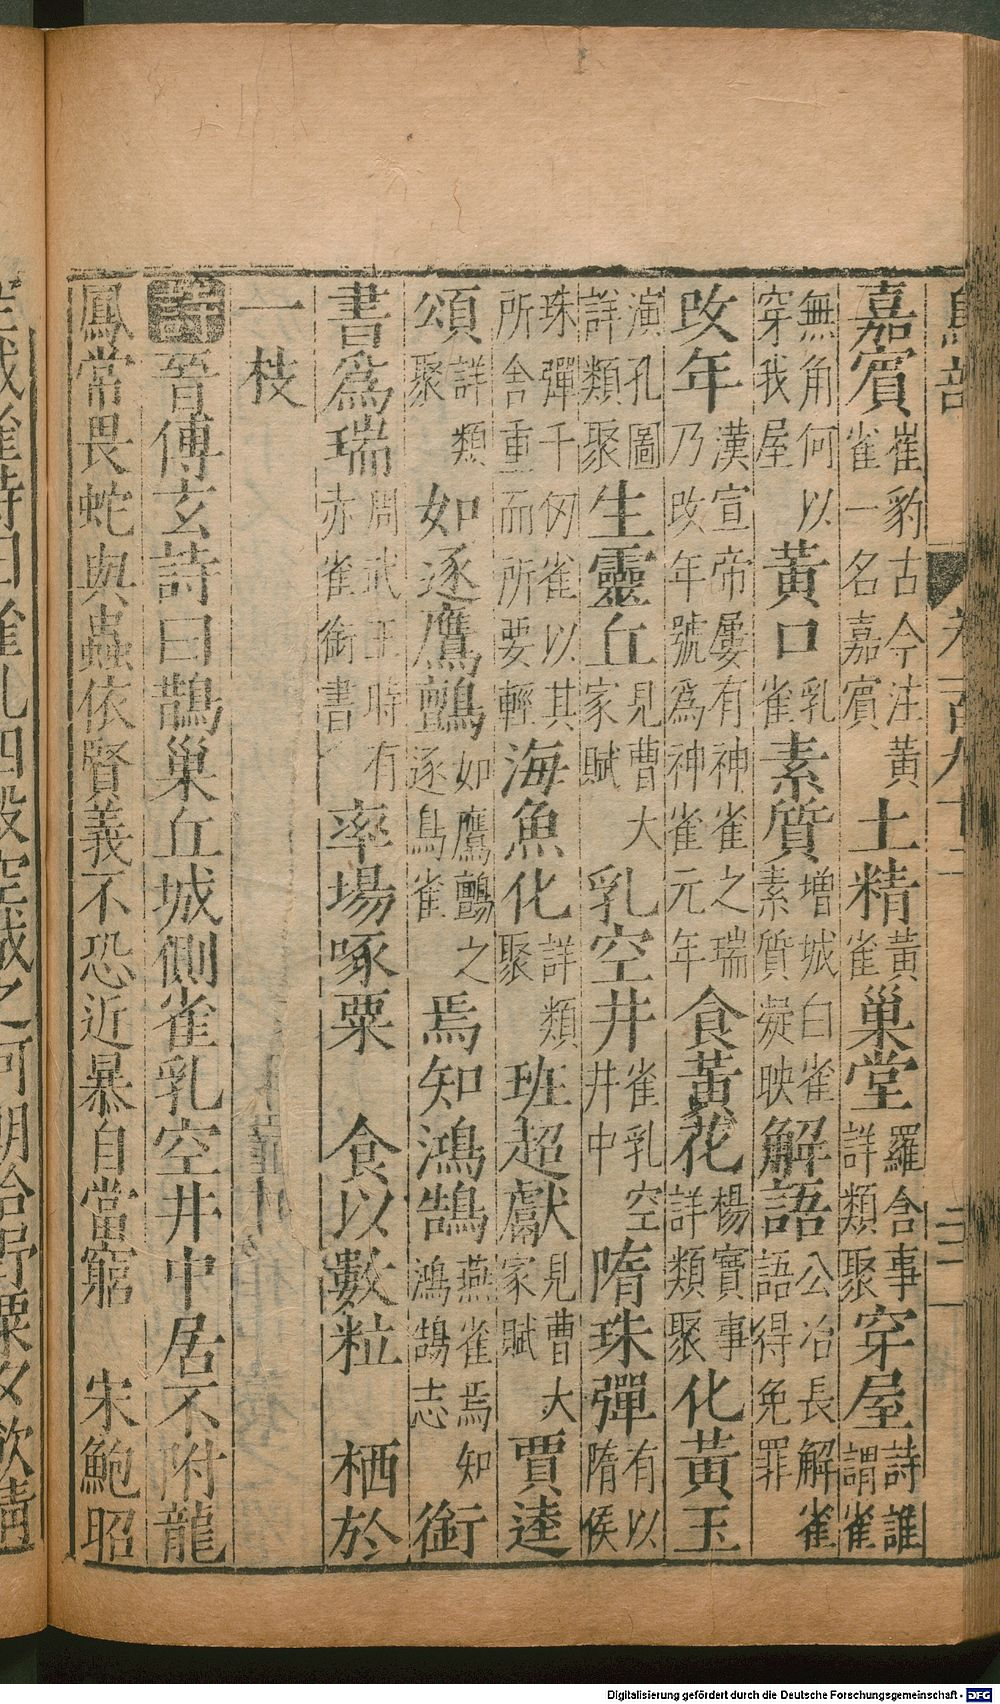 嘉賓崔豹古今注黃雀一名嘉賓 土精黃雀 巢堂羅含事詳類聚 穿屋詩誰謂雀
無角何以穿我屋 黃口乳雀 素質增城白雀素質凝映 解語公冶長解雀語得免罪
改年漢宣帝屢有神雀之瑞乃改年號為神雀元年 食黃花楊寶事詳類聚 化黃玉
演孔圖詳類聚 生靈丘見曹大家賦 乳空井雀乳空井中 隋珠彈有以隋侯
珠彈千仞雀以其所舍重而所要輕 海魚化詳類聚 班超獻見曹大家賦 賈逵
頌詳類聚 如逐鷹鸇如鷹鸇之逐鳥雀 焉知鴻鵠燕雀焉知鴻鵠志 銜
書為瑞周武王時有赤雀銜書 率場啄粟 食以數粒 栖於
一枝
詩晉傅玄詩曰鵲巢丘城側雀乳空井中居不附龍
鳳常畏蛇與蟲依賢義不恐近暴自當窮 宋鮑昭
Digitalisierung gefördert durch die Deutsche Forschungsgemeinschaft - DFG